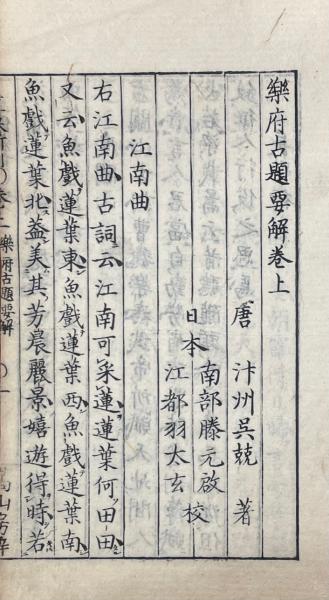 樂府古題要解卷上
唐 汴州吳兢 著
日本 南部滕元啟
江都羽太玄 校
江南曲
右江南曲古詞云江南可采蓮蓮葉何田田
又云魚戲蓮葉東魚戲蓮葉西魚戲蓮葉南
魚戲蓮葉北葢美其芳晨麗景嬉遊待時若
卷上 樂府古題要解